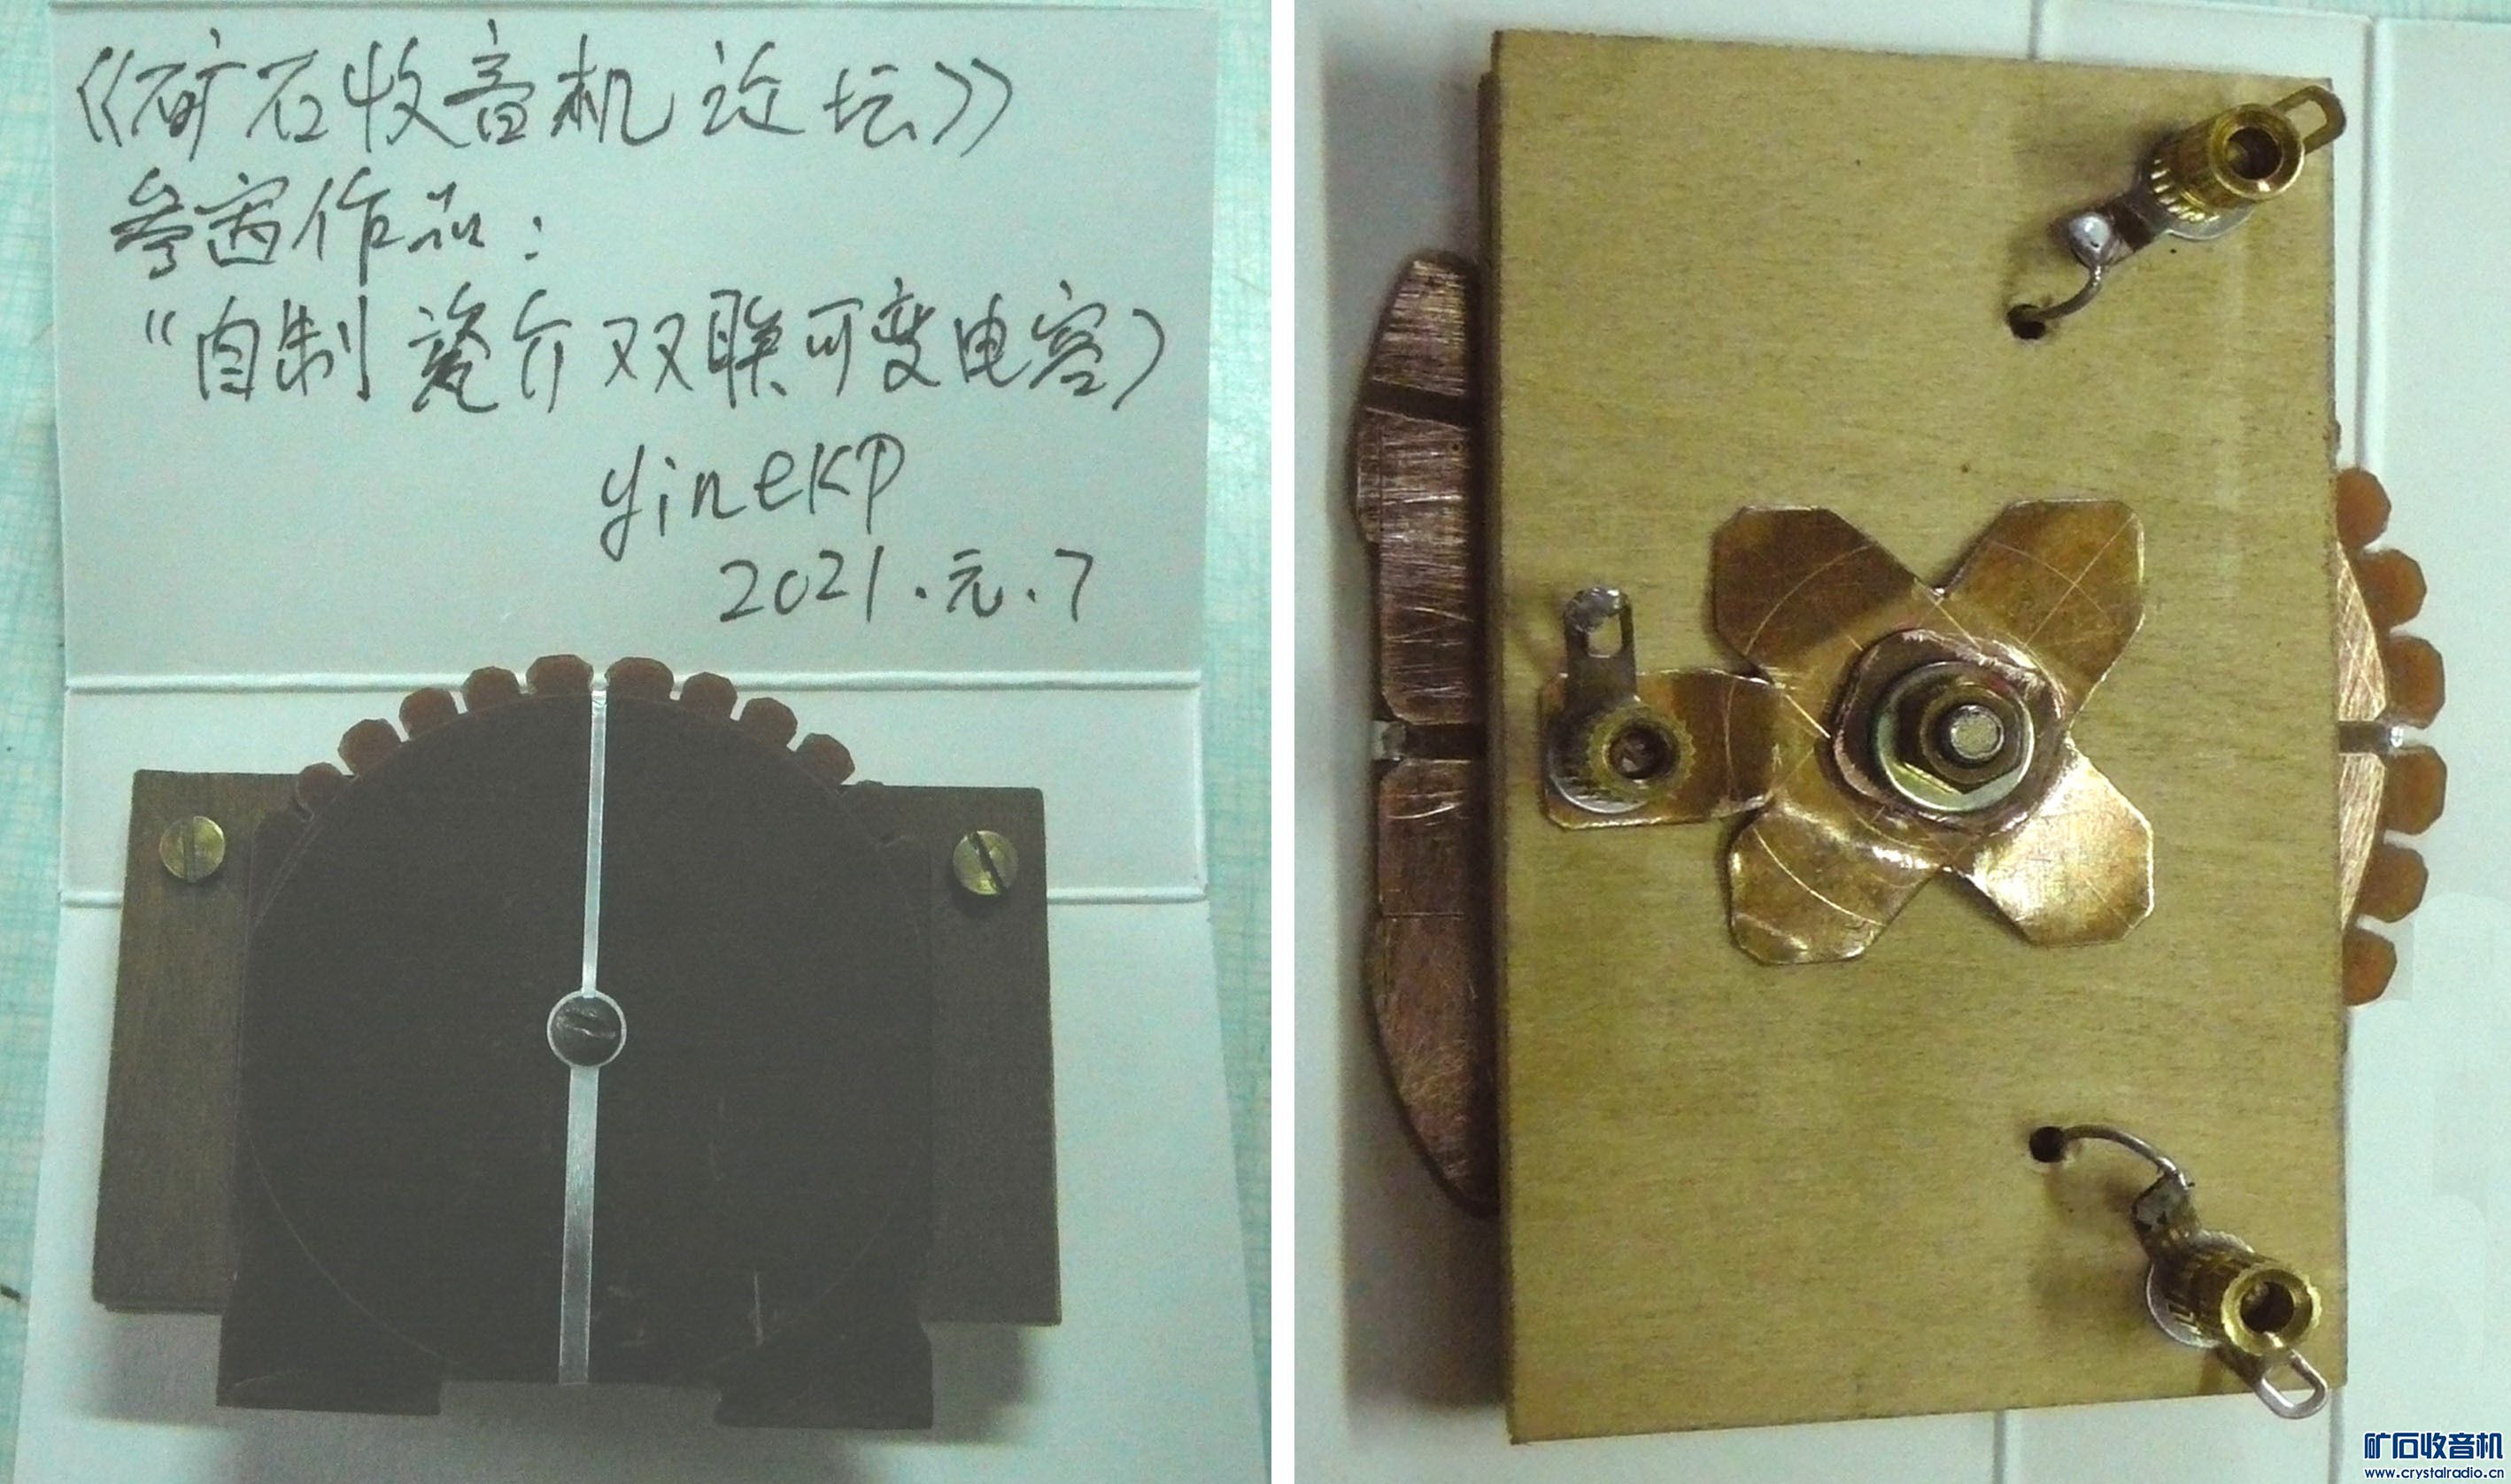 《矿石收音机论坛》
参赛作品：
“自制瓷介双联可变电容）
yinekp
2021.元.7
矿石收音机
www.crystalradio.cn